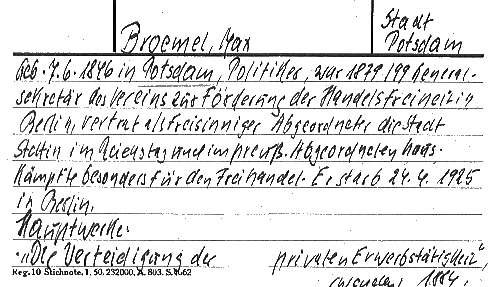 Stadt
Broemel, Max Potsdam
Geb. 7.6.1846 in Potsdam, Politiker, war 1879/99 General-
sekretär des Vereins zur Förderung der Handelsfreiheit in
Berlin, vertrat als freisinniger Abgeordneter die Stadt
Stettin im Reichstag und im preuß. Abgeordnetenhaus.
Kämpfte besonders für den Freihandel. Er starb 24.4.1925
in Berlin.
Hauptwerke:
"Die Verteidigung der privaten Erwerbstätigkeit",
Reg. 10 Stichnote, 1, 50. 232000, A. 803. S. 8062
1884.